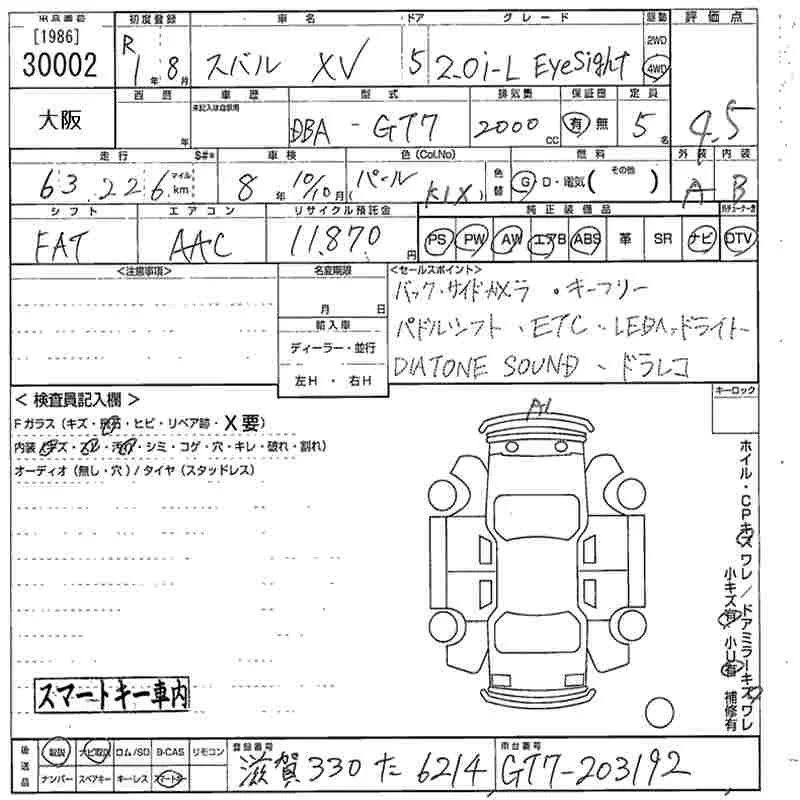 東京番号 初度登録 車名 ドア グレード 駆動 評価点
[1986] 30002 R 1年 8月 スバル XV 5 2.0i-L EyeSight 2WD 4WD 4.5
大阪 西暦 年 車歴 未記入は自家用 型式 DBA - GT7 排気量 2000 CC 保証書 有 無 定員 5名
走行 63,226 マイル km S#* 車検 8年 10/10月 色(Col.No) パール ( K1X ) 色替 燃料 G・D・電気( その他 ) 外装 A 内装 B
シフト FAT エアコン AAC リサイクル預託金 11,870円 純正装備品 PS PW AW エアB ABS 革 SR ナビ DTV
<注意事項> 名変期限 月 日 <セールスポイント>
輸入車 ディーラー・並行 左H・右H
バック・サイドカメラ・キーフリー
パドルシフト、ETC、LEDヘッドライト
DIATONE SOUND、ドラレコ
<検査員記入欄> キーロック
Fガラス(キズ・飛石・ヒビ・リペア跡・X要)
内装(キズ・スレ・汚れ・シミ・コゲ・穴・キレ・破れ・割れ)
オーディオ(無し・穴)/タイヤ(スタッドレス)
A1
ホイル・CPキズワレ/ドアミラーキズワレ
小キズ有 小U有 補修有
スマートキー車内
後送品 取説 ナビ取説 ロム/SD B-CAS リモコン
ナンバー スペアキー キーレス スマートキー
登録番号 滋賀 330 た 6214 車台番号 GT7-203192